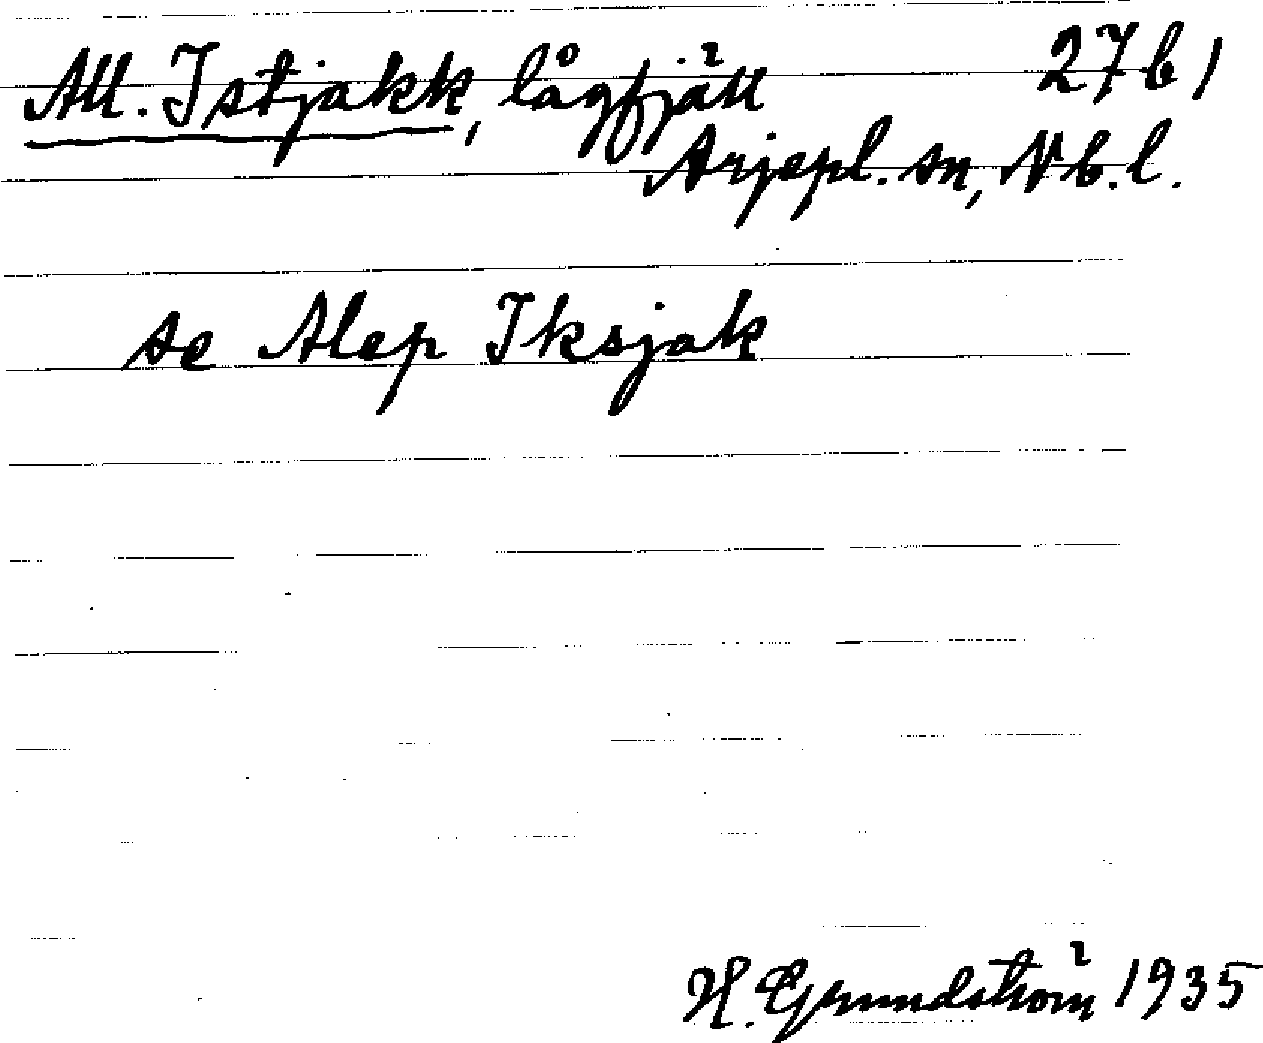 All. Istjakk, lågfjäll 27 b 1
Arjepl. sn, Nb.l.
se Alep Iksjak
H. Grundström 1935